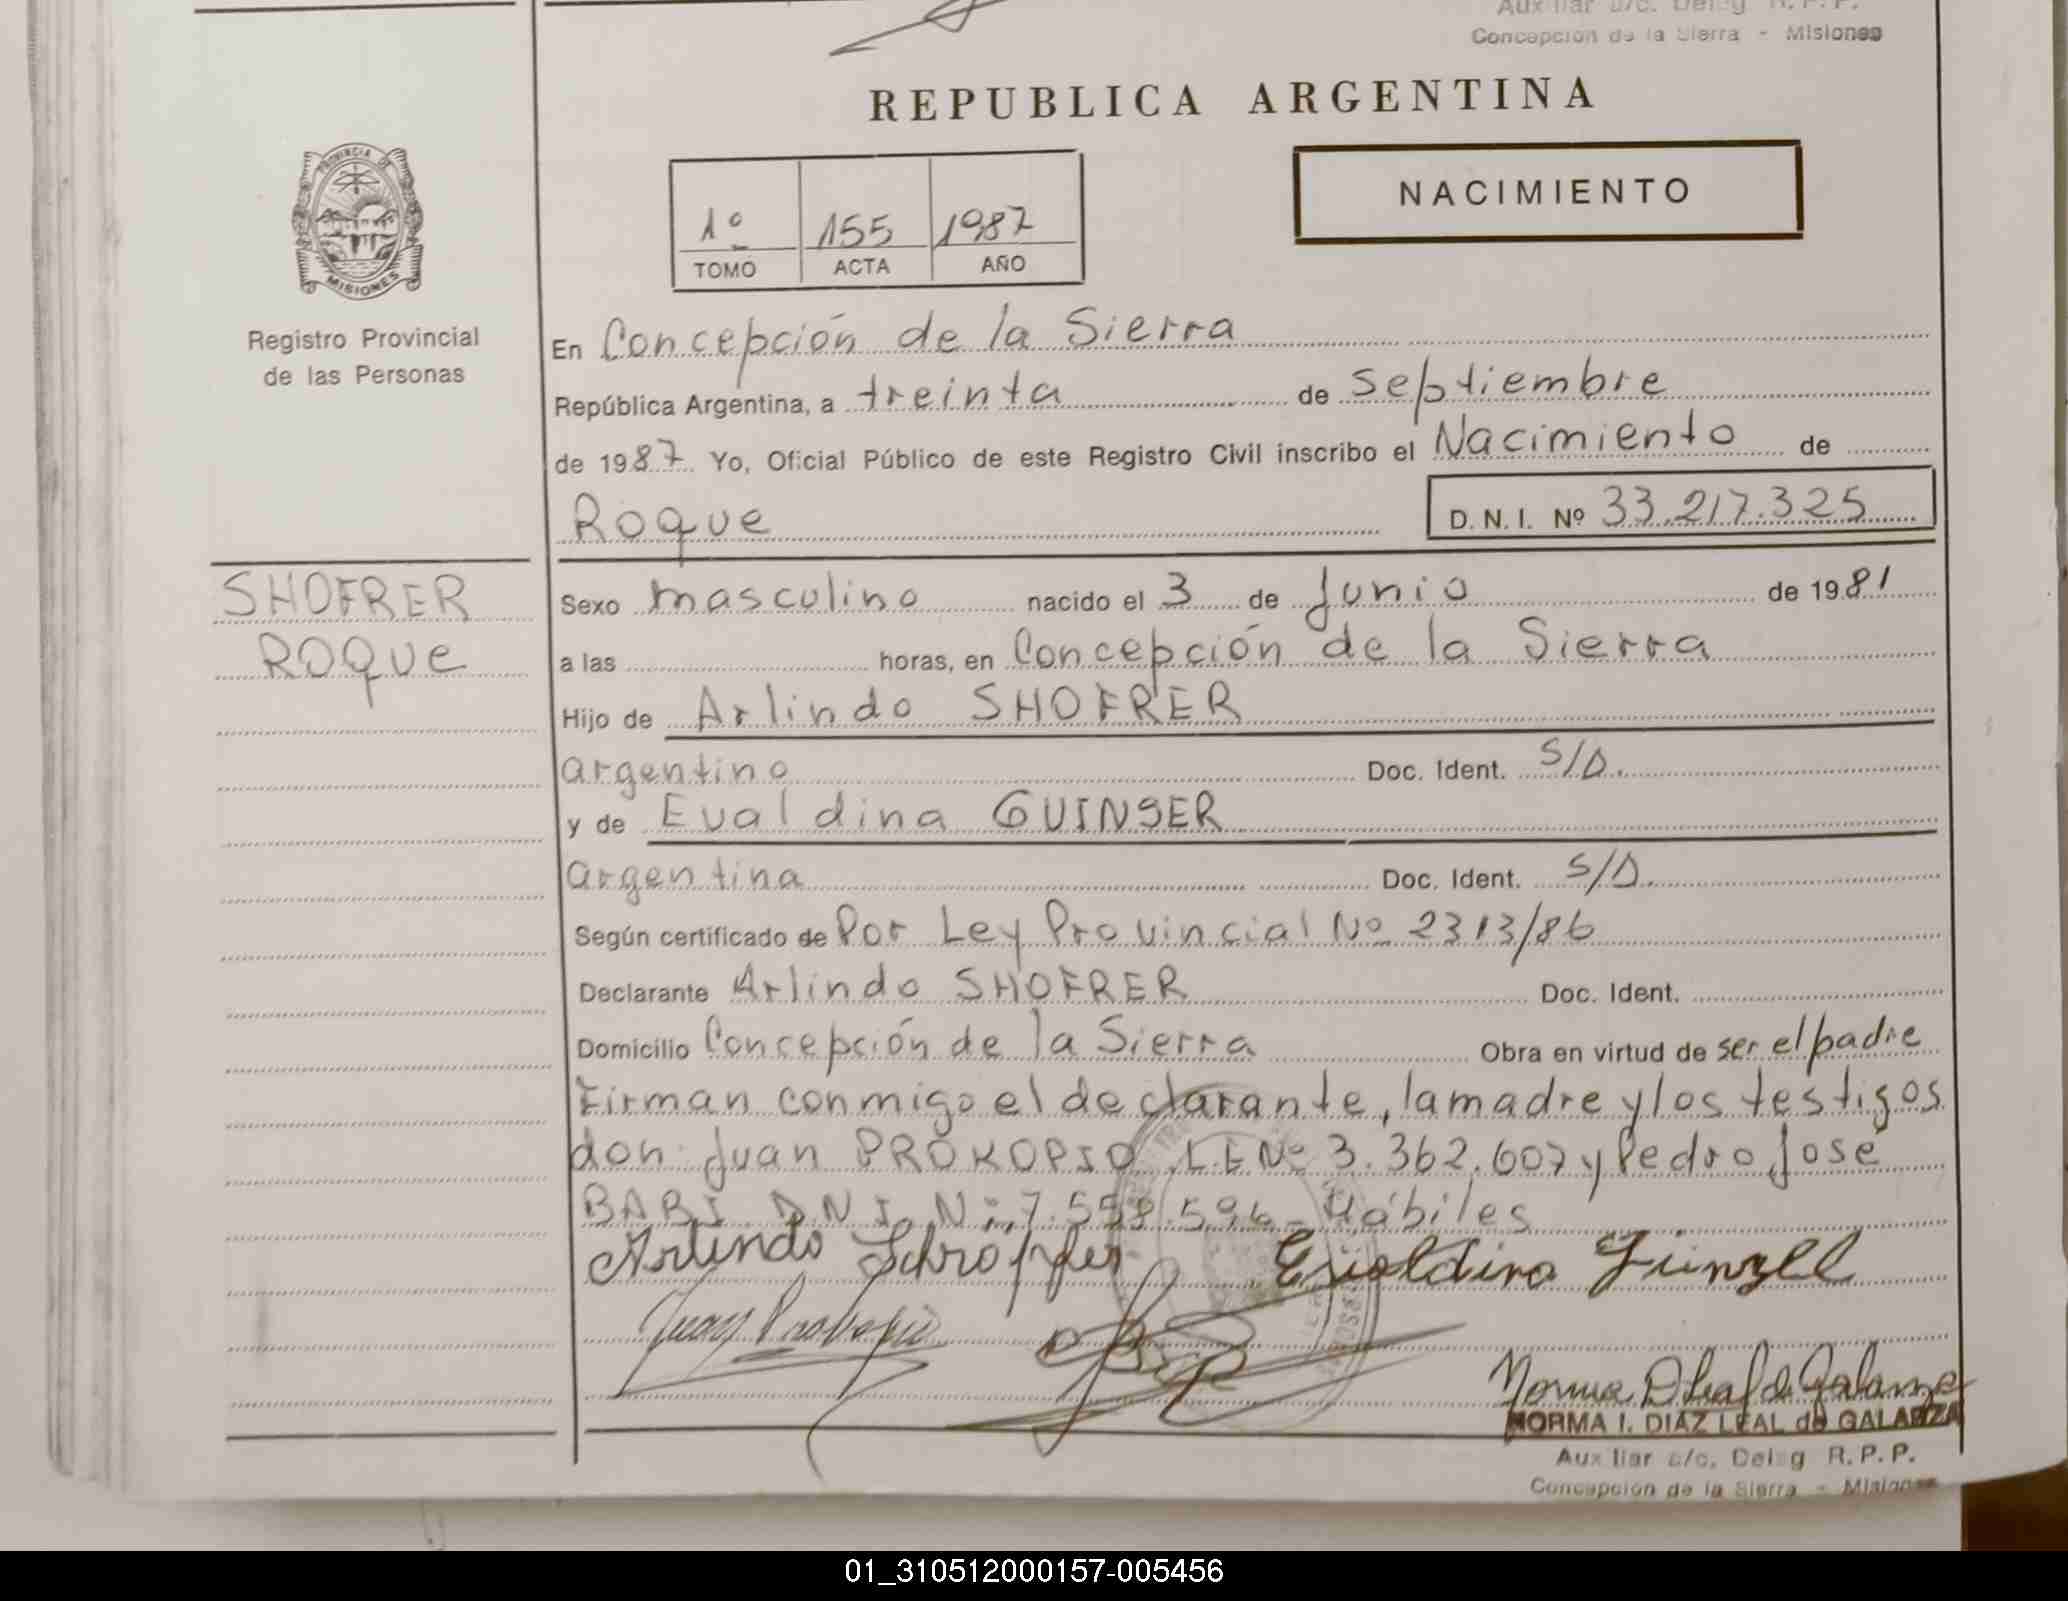 Auxiliar c/c. Deleg R.P.P.
Concepcion de la Sierra - Misiones
REPUBLICA ARGENTINA
PROVINCIA DE
MISIONES
1º 155 1987
TOMO ACTA AÑO
NACIMIENTO
Registro Provincial
de las Personas
En Concepción de la Sierra
República Argentina, a treinta de septiembre
de 1987 Yo, Oficial Público de este Registro Civil inscribo el Nacimiento de
Roque D. N. I. Nº 33.217.325
SHOFRER
ROQUE
Sexo masculino nacido el 3 de Junio de 1981
a las horas, en Concepción de la Sierra
Hijo de Arlindo SHOFRER
argentino Doc. Ident. S/D.
y de Evaldina GUINSER
argentina Doc. Ident. S/D.
Según certificado de Por Ley Provincial Nº 2313/86
Declarante Arlindo SHOFRER Doc. Ident.
Domicilio Concepción de la Sierra Obra en virtud de ser el padre
Firman conmigo el declarante, la madre y los testigos
don Juan PROKOPIO L.E Nº 3.362.607 y Pedro José
BARI D N I. Nº 7.558.596 - Hábiles
Arlindo Schröpfer Evaldina Günzel
Juan Prokopio
Norma D Leal de Galarza
NORMA I. DIAZ LEAL de GALARZA
Auxiliar c/c. Deleg R.P.P.
Concepcion de la Sierra - Misiones
01_310512000157-005456